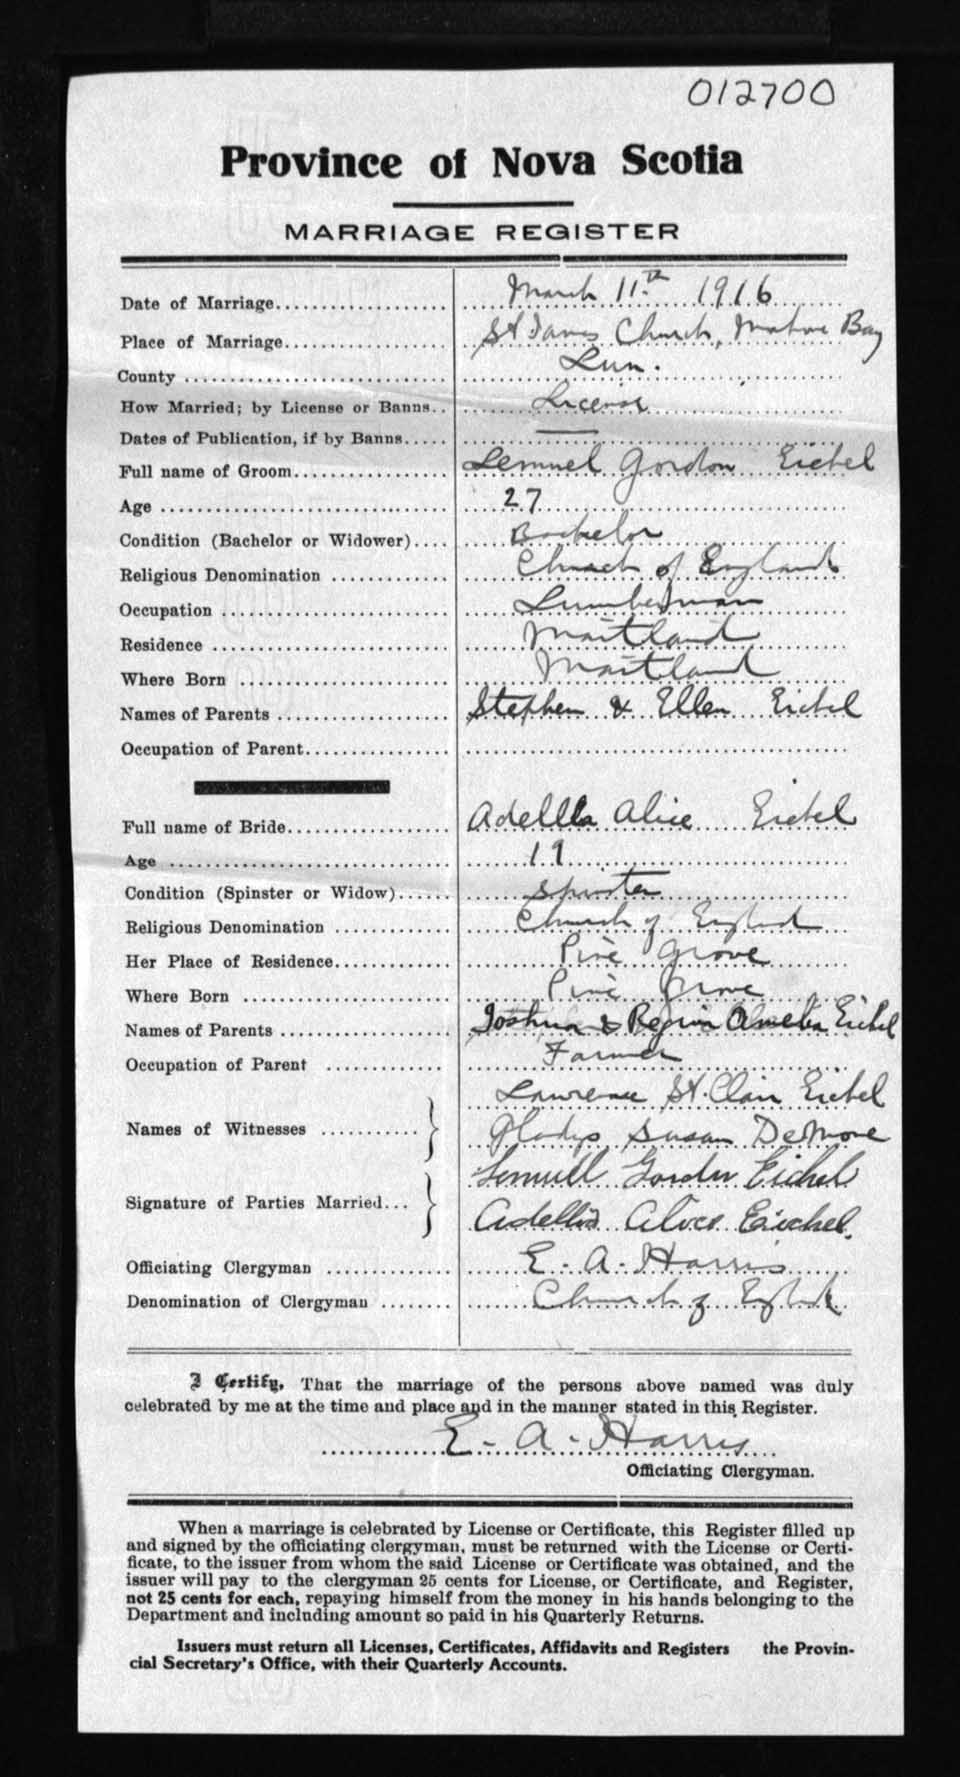 012700
Province of Nova Scotia
MARRIAGE REGISTER
Date of Marriage March 11th 1916
Place of Marriage St James Church, Mahone Bay
County Lun.
How Married; by License or Banns License
Dates of Publication, if by Banns —
Full name of Groom Lemuel Gordon Eichel
Age 27
Condition (Bachelor or Widower) Bachelor
Religious Denomination Church of England
Occupation Lumberman
Residence Maitland
Where Born Maitland
Names of Parents Stephen & Ellen Eichel
Occupation of Parent
Full name of Bride Adella Alice Eichel
Age 19
Condition (Spinster or Widow) Spinster
Religious Denomination Church of England
Her Place of Residence Pine Grove
Where Born Pine Grove
Names of Parents Joshua & Regina Amelia Eichel
Occupation of Parent Farmer
Lawrence St. Clair Eichel
Names of Witnesses
Gladys Susan DeMone
Lemuell Gorden Eichel
Signature of Parties Married
Adella Eichel.
Officiating Clergyman E. A. Harris
Denomination of Clergyman Church of England
I Certify, That the marriage of the persons above named was duly
celebrated by me at the time and place and in the manner stated in this Register.
E. A. Harris
Officiating Clergyman.
When a marriage is celebrated by License or Certificate, this Register filled up
and signed by the officiating clergyman, must be returned with the License or Certi-
ficate, to the issuer from whom the said License or Certificate was obtained, and the
issuer will pay to the clergyman 25 cents for License, or Certificate, and Register,
not 25 cents for each, repaying himself from the money in his hands belonging to the
Department and including amount so paid in his Quarterly Returns.
Issuers must return all Licenses, Certificates, Affidavits and Registers the Provin-
cial Secretary's Office, with their Quarterly Accounts.